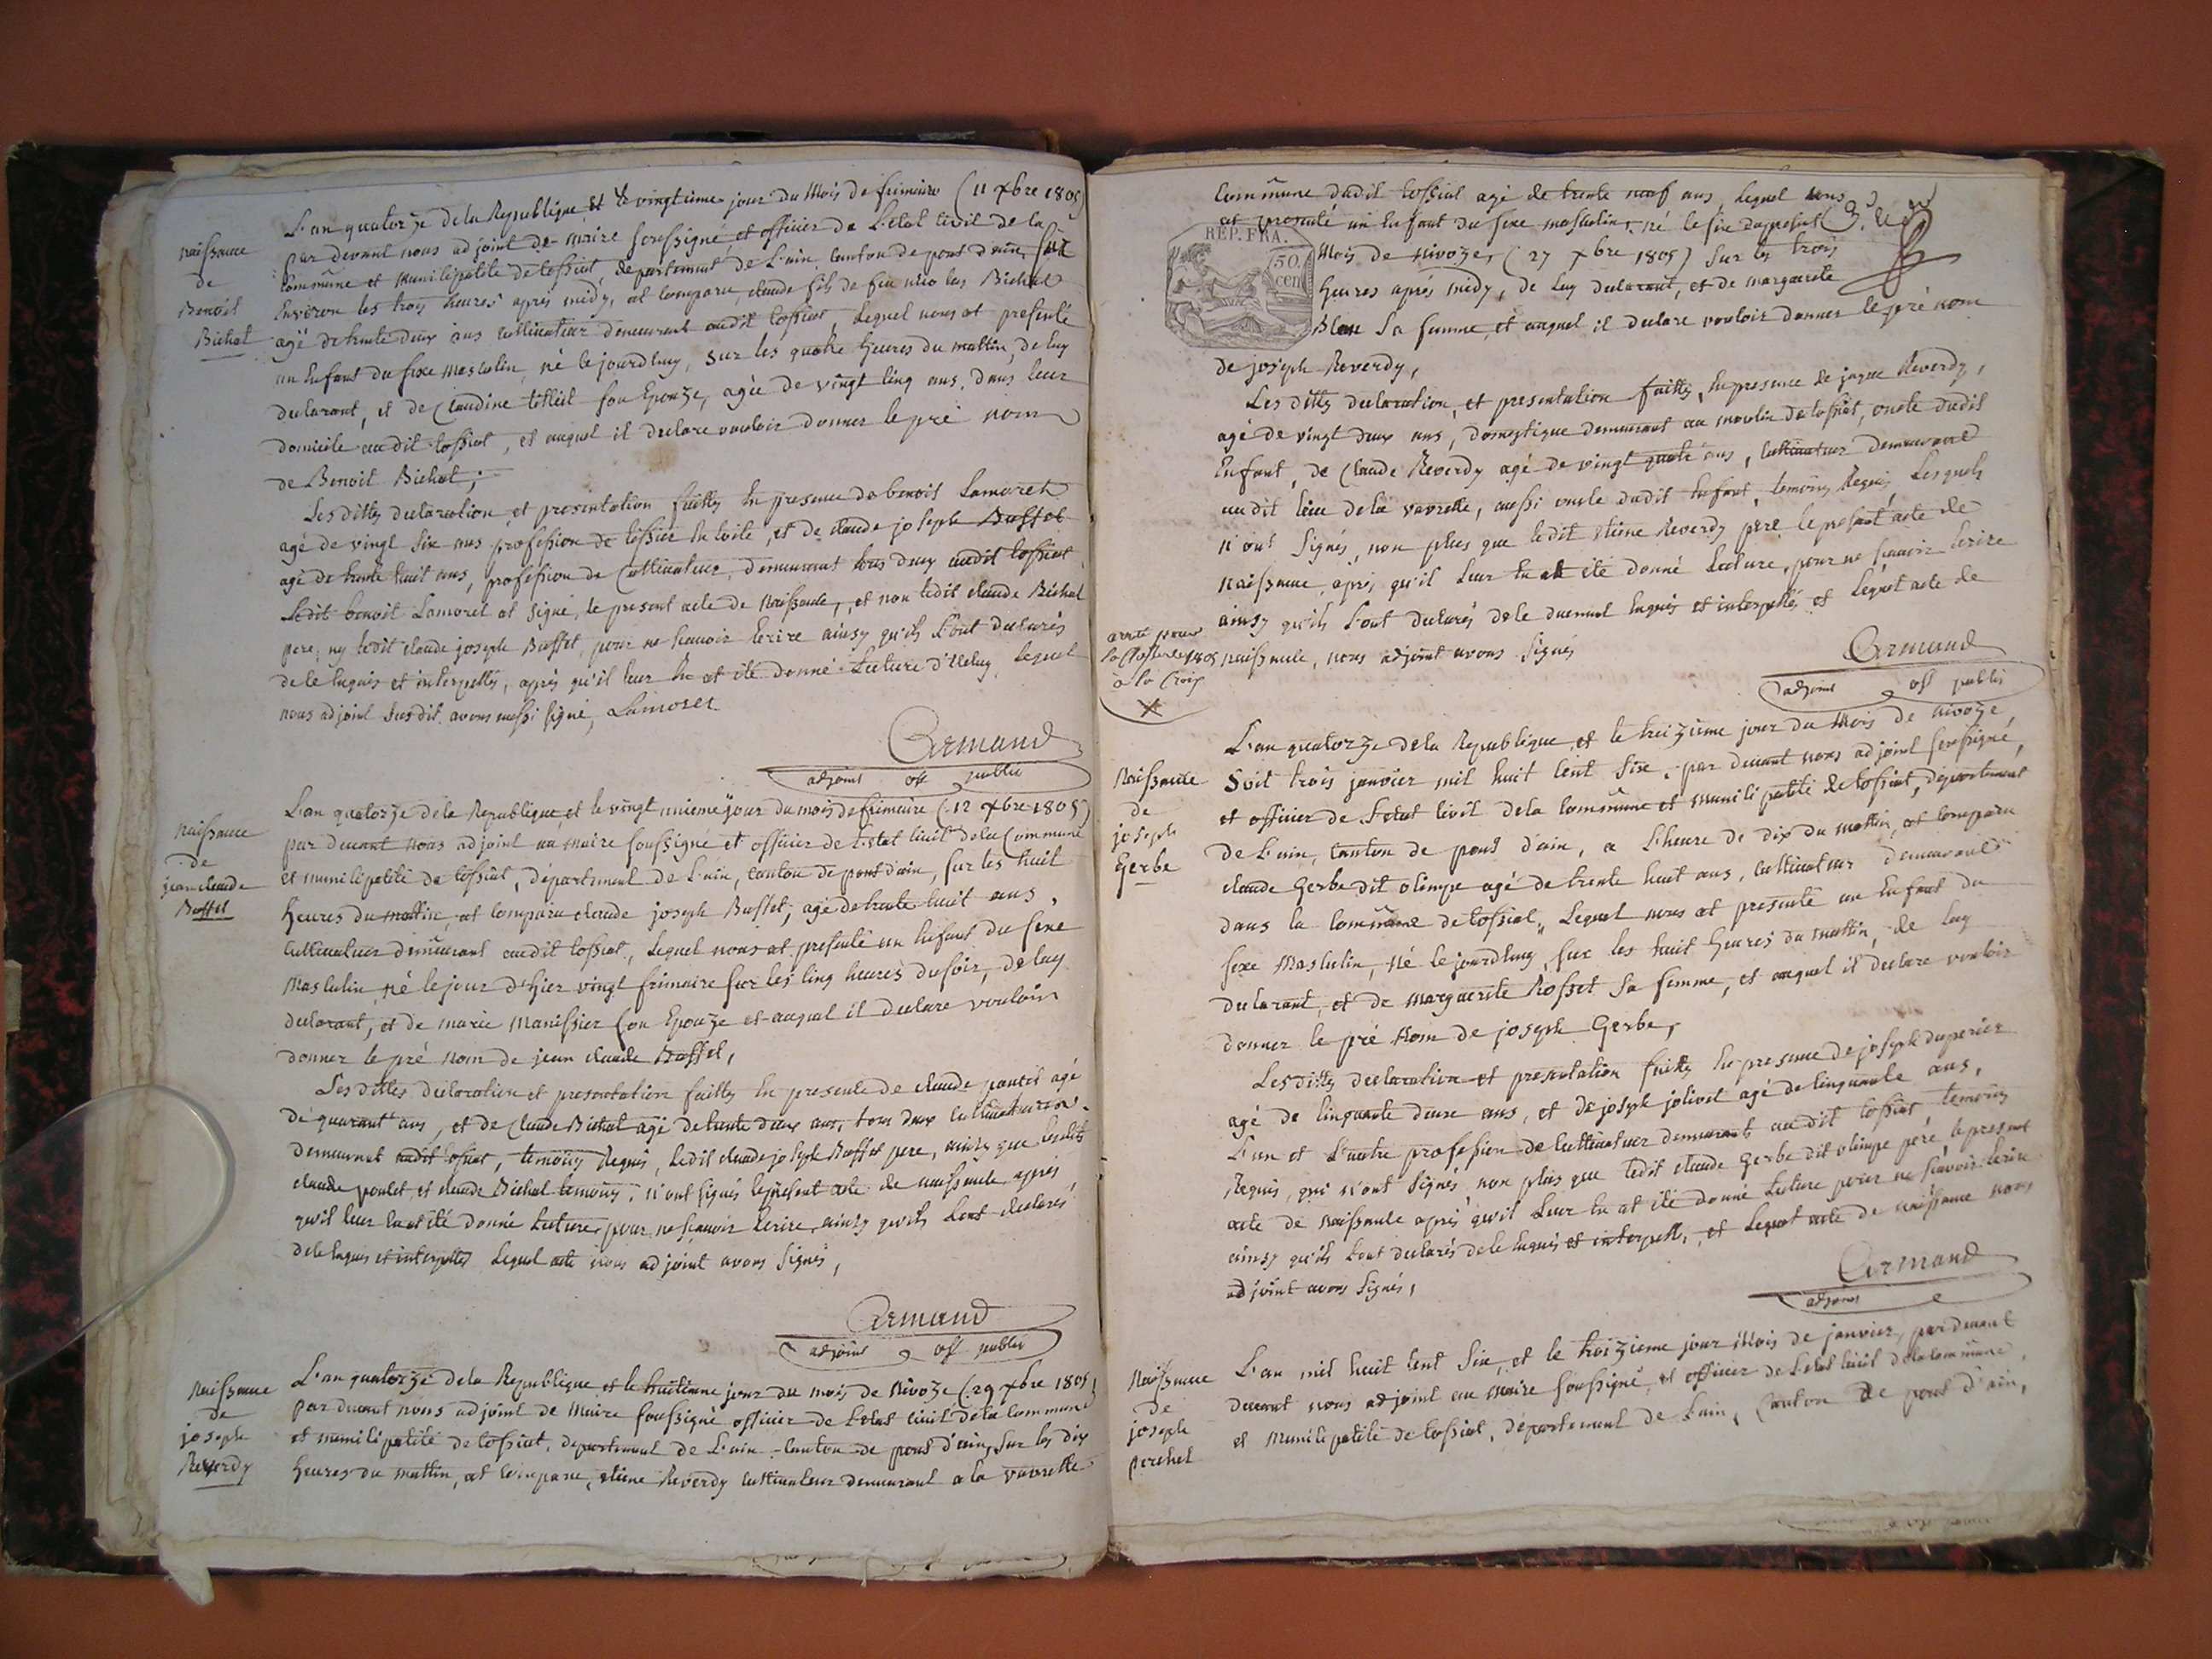 naissance
de
Benoît
Bichat
L'an quatorze de la Republique et le vingtieme jour du Mois de frimaire (11 Xbre 1805)
par devant nous adjoint de maire soussigné et officier de L'etat Civil de la
Commune et municipalité de tossiat département de L'ain canton de pont d'ain, sur
Environ les trois heures après midy, at comparu, claude fils de feu nicolas Bichat
agé de trente deux ans cultivateur demeurant audit tossiat, Lequel nous at présenté
un Enfant du sexe masculin, né le jourdhuy, sur les quatre heures du mattin, de luy
declarant, et de Claudine son Epouze, agée de vingt cinq ans, dans leur
domicile audit tossiat, et auquel il declare vouloir donner le pré nom
de Benoit Bichat,
Les dittes declaration et presentation faittes En presence de benoit Lamoret
agé de vingt six ans profession de tissier En toile, et de claude joseph Buffet
agé de trente huit ans, profession de Cultivateur, demeurant tous deux audit tossiat
Ledit benoit Lamoret at signé, le present acte de naissance, et non ledit claude Bichat
pere, ny ledit claude joseph Buffet, pour ne scavoir Ecrire ainsy qu'ils L'ont declarés
de ce Enquis et interpellés, après qu'il leur En at été donné Lecture d'Iceluy, Lequel
nous adjoint susdit avons aussi signé, Lamoret
Armand
adjoint off public
naissance
de
jean claude
Buffet
L'an quatorze de la Republique, et le vingt unieme jour du mois de frimaire (12 Xbre 1805)
par devant nous adjoint au maire soussigné et officier de L'etat Civil de la Commune
et municipalité de tossiat, département de L'ain, canton de pont d'ain, sur les huit
heures du mattin, at comparu claude joseph Buffet, agé de trente huit ans,
cultivateur demeurant audit tossiat, Lequel nous at presenté un Enfant du sexe
masculin, né le jour d'hier vingt frimaire sur les cinq heures du soir, de luy
declarant, et de marie Manissier son Epouze et auquel il declare vouloir
donner le pré nom de jean claude Buffet,
Les dittes declaration et presentation faittes En presence de claude poncet agé
de quarant ans, et de Claude Bichat agé de trente deux ans, tous deux cultivateurs
demeurant audit tossiat, temoins Requis, Ledit claude joseph Buffet pere, ainsy que lesdits
claude poncet et claude Bichat temoins, n'ont signés le present acte de naissance après
qu'il leur En at été donné Lecture, pour ne scavoir Ecrire, ainsy qu'ils L'ont declarés
de ce Enquis et interpellés Lequel acte nous adjoint avons signés,
Armand
adjoint off public
Naissance
de
joseph
Reverdy
L'an quatorze de la Republique et le huitieme jour du mois de Nivoze (29 Xbre 1805)
par devant nous adjoint de Maire soussigné officier de L'etat civil de la Commune
et municipalité de tossiat, departement de L'ain canton de pont d'ain, sur les dix
heures du mattin, at comparu, etiene Reverdy cultivateur demeurant a la vavrette
Commune dudit tossiat agé de trente neuf ans, Lequel nous
at presenté un Enfant du sexe masculin, né le six du present
REP. FRA.
50
cen
Mois de Nivoze, (27 Xbre 1805) sur les trois
heures après midy, de Luy declarant, et de marguerite
Blanc sa femme, et auquel il declare vouloir donner le pré nom
de joseph Reverdy,
Les dittes declaration, et presentation faittes, En presence de jaque Reverdy,
agé de vingt deux ans, domestique demeurant au moulin de tossiat, oncle dudit
Enfant, de Claude Reverdy agé de vingt quatre ans, cultivateur demeurant
audit lieu de la vavrette, aussi oncle dudit Enfant, temoins Requis, Lesquels
n'ont signés, non plus que ledit etiene Reverdy père le present acte de
naissance, après qu'il leur En at été donné Lecture, pour ne scavoir Ecrire
ainsy qu'ils L'ont declarés de ce duement Enquis et interpellés et Lequel acte de
naissance, nous adjoint avons signés
Armand
adjoint off public
arreté pour
1805
à la Croix
X
Naissance
de
joseph
Gerbe
L'an quatorze de la Republique, et le treizieme jour du Mois de nivoze,
soit trois janvier mil huit cent six, par devant nous adjoint soussigné,
et officier de L'etat Civil de la Commune et municipalité de tossiat, département
de L'ain, canton de pont d'ain, a L'heure de dix du mattin, at comparu
claude Gerbe dit olimpe agé de trente huit ans, cultivateur demeurant
dans la Commune de tossiat, Lequel nous at presenté un Enfant du
sexe masculin, né le jourdhuy, sur les huit heures du mattin, de luy
declarant, et de marguerite Rosset sa femme, et auquel il declare vouloir
donner le pré nom de joseph Gerbe,
Les dittes declaration et presentation faittes En presence de joseph duperier
agé de cinquante deux ans, et de joseph jolivet agé de cinquante ans,
L'un et L'autre profession de cultivateur demeurants audit tossiat, temoins
Requis, qui n'ont signés, non plus que ledit claude Gerbe dit olimpe père, le present
acte de naissance après qu'il leur En at été donné Lecture pour ne scavoir Ecrire
ainsy qu'ils L'ont declarés de ce Enquis et interpellés, et Lequel acte de naissance nous
adjoint avons signés,
Armand
adjoint
Naissance
de
joseph
perchet
L'an mil huit cent six, et le treizieme jour Mois de janvier, par devant
devant nous adjoint au maire soussigné, et officier de L'etat civil de la commune,
et municipalité de tossiat, département de L'ain, canton de pont d'ain,